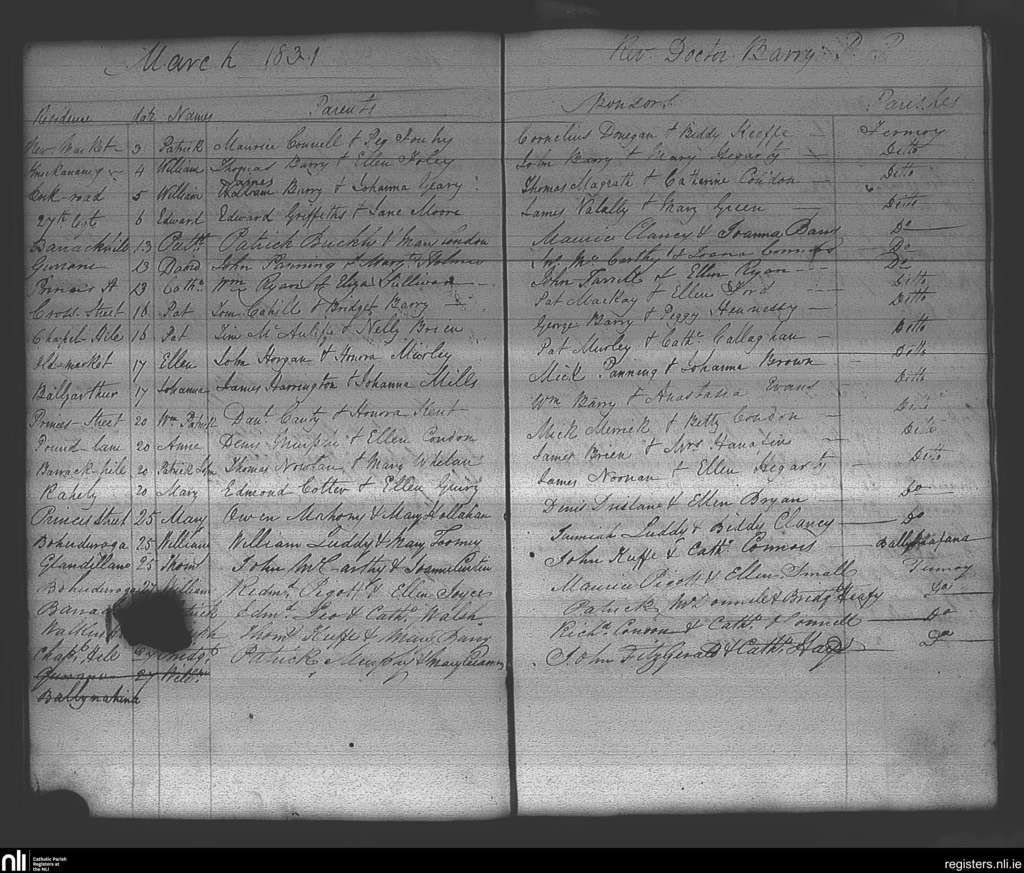 March 1831 Rev. Doctor Barry P. P.
Residence date Names Parents Sponsors Parishes
New Market 3 Patrick Maurice Connell & Peg Cornelius Donegan & Biddy Keeffe Fermoy
4 William Thomas Barry & Ellen Foley John Barry & Hegarty Ditto
Cork-road 5 William James Barry & Johanna Geary Thomas Magrath & Catherine Condon Ditto
27th 6 Edward Edward Griffiths & Jane Moore James & Mary Green Ditto
Barrackhile 13 Patk. Patrick Buckly & Mary Condon Maurice Clancy & Joanna Barry Do
13 David John & Jno. McCarthy & Joana Connors Do
Princes St 13 Cathe. Wm. Ryan & Eliza Sullivan John Farrell & Ellen Ryan Do
Cross Street 16 Pat Tom Cahill & Bridget Barry Pat Mackay & Ellen Ford Ditto
Chapel Hile 16 Pat Tim McAuliffe & Nelly Brien George Barry & Peggy Hennessy Ditto
Old market 17 Ellen John Horgan & Honora Murley Pat Murley & Cathe. Callaghan Ditto
Ballyarthur 17 Johanna James Harrington & Johanna Mills Mick Panning & Johanna Brown Ditto
Princes Street 20 Wm Patrick Danl. Canty & Honora Kent Wm Barry & Anastasia Evans Ditto
Pound lane 20 Anne Denis & Ellen Condon Mick Merrick & Betty Condon Ditto
Barrack-hile 20 Patrick John Thomas Nowlan & Mary Whelan James Brien & Mrs. Ditto
Rahely 20 Mary Edmond Cotter & Ellen James Noonan & Ellen Hegarty Ditto
Princes Street 25 Mary Owen Mahony & Mary Hollahan Denis & Ellen Bryan Do
Bohuderoga 25 William William Luddy & Mary Toomey Luddy & Biddy Clancy Do
Glandillane 25 Thoms John McCarthy & Joana Curtin John Keeffe & Cathe. Connors
Bohuderoga 27 William Redmd. Pigott & Ellen Joyce Maurice Pigott & Ellen Small Fermoy
Barra Edmd. Leo & Cathe. Walsh Patrick McDonnell & Bridgt. Heafy Do
Thoms. Keffe & Mary Barry Richd. Condon & Cathe. Connell Do
Chapl. Hile 27 Bridgt. Patrick Murphy & Mary John Fitzgerald & Cathe. Do
27 Willm.
Ballynahina
nli Catholic Parish Registers at the NLI registers.nli.ie